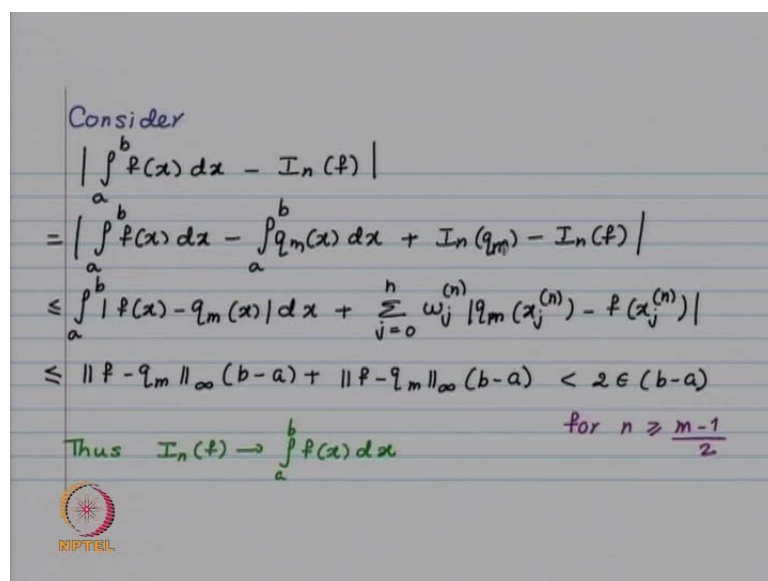 Consider
| ∫_a^b f(x) dx - I_n(f) |
= | ∫_a^b f(x) dx - ∫_a^b q_m(x) dx + I_n(q_m) - I_n(f) |
≤ ∫_a^b | f(x) - q_m(x) | dx + ∑_{j=0}^n ω_j^{(n)} | q_m(x_j^{(n)}) - f(x_j^{(n)}) |
≤ ‖ f - q_m ‖_∞ (b-a) + ‖ f - q_m ‖_∞ (b-a) < 2 ∈ (b-a)
for n ≥ \frac{m-1}{2}
Thus I_n(f) → ∫_a^b f(x) dx
NPTEL